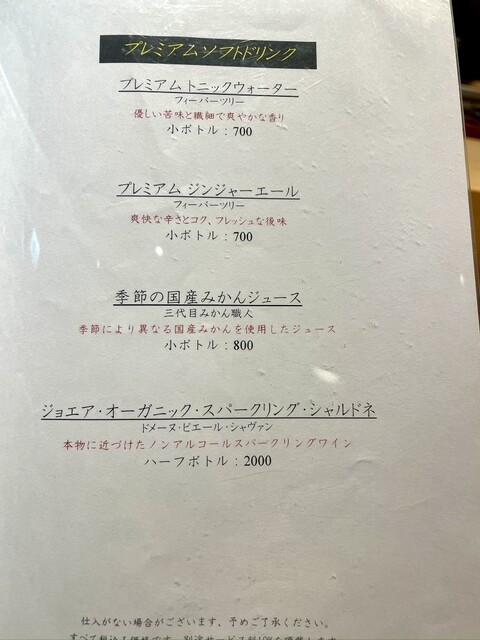 プレミアムソフトドリンク
プレミアム トニックウォーター
フィーバーツリー
優しい苦味と繊細で爽やかな香り
小ボトル：700
プレミアム ジンジャーエール
フィーバーツリー
爽快な辛さとコク、フレッシュな後味
小ボトル：700
季節の国産みかんジュース
三代目みかん職人
季節により異なる国産みかんを使用したジュース
小ボトル：800
ジョエア・オーガニック・スパークリング・シャルドネ
ドメーヌ・ピエール・シャヴァン
本物に近づけたノンアルコールスパークリングワイン
ハーフボトル：2000
仕入がない場合がございます、予めご了承ください。
すべて税込み価格です。別途サービス料10%を頂戴します